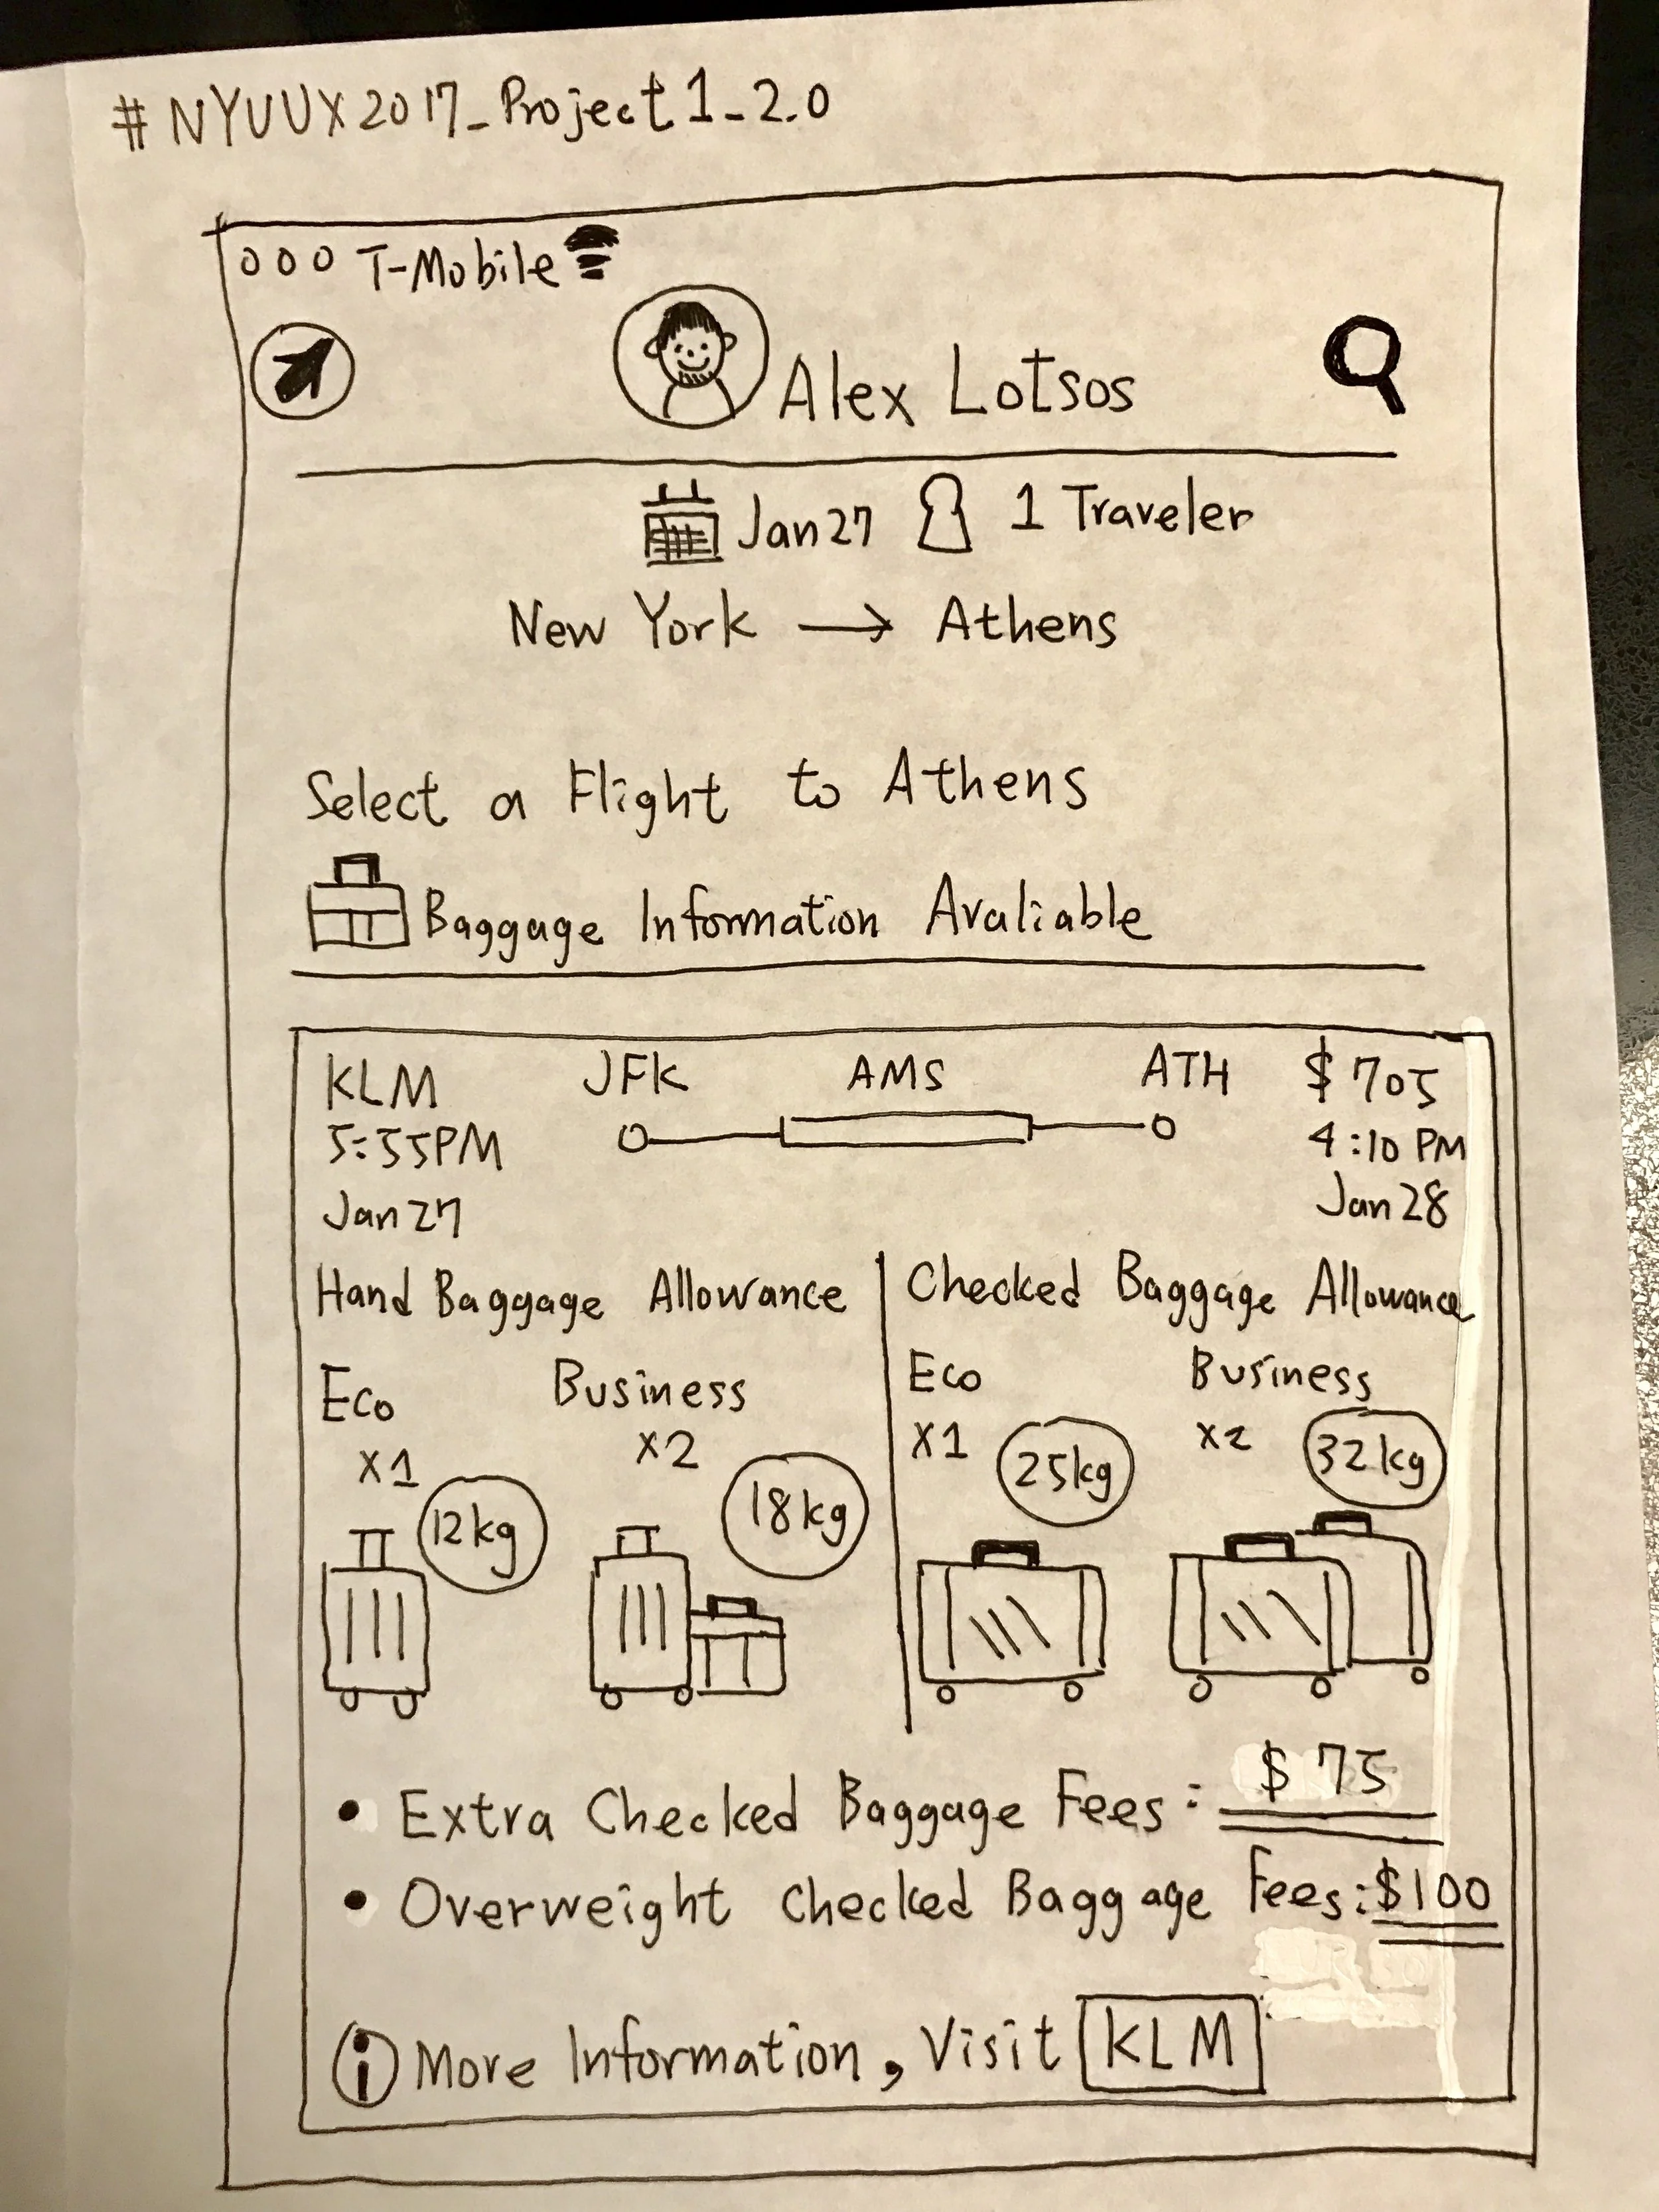 #NYUUX2017_Project1_2.0
T-Mobile
Alex Lotsos
Jan 27 1 Traveler
New York → Athens
Select a Flight to Athens
Baggage Information Avaliable
KLM JFK AMS ATH $705
5:55PM 4:10 PM
Jan 27 Jan 28
Hand Baggage Allowance Checked Baggage Allowance
Eco Business Eco Business
X1 X2 X1 X2
12kg 18kg 25kg 32kg
• Extra Checked Baggage Fees: $75
• Overweight Checked Baggage Fees: $100
i More Information, Visit KLM